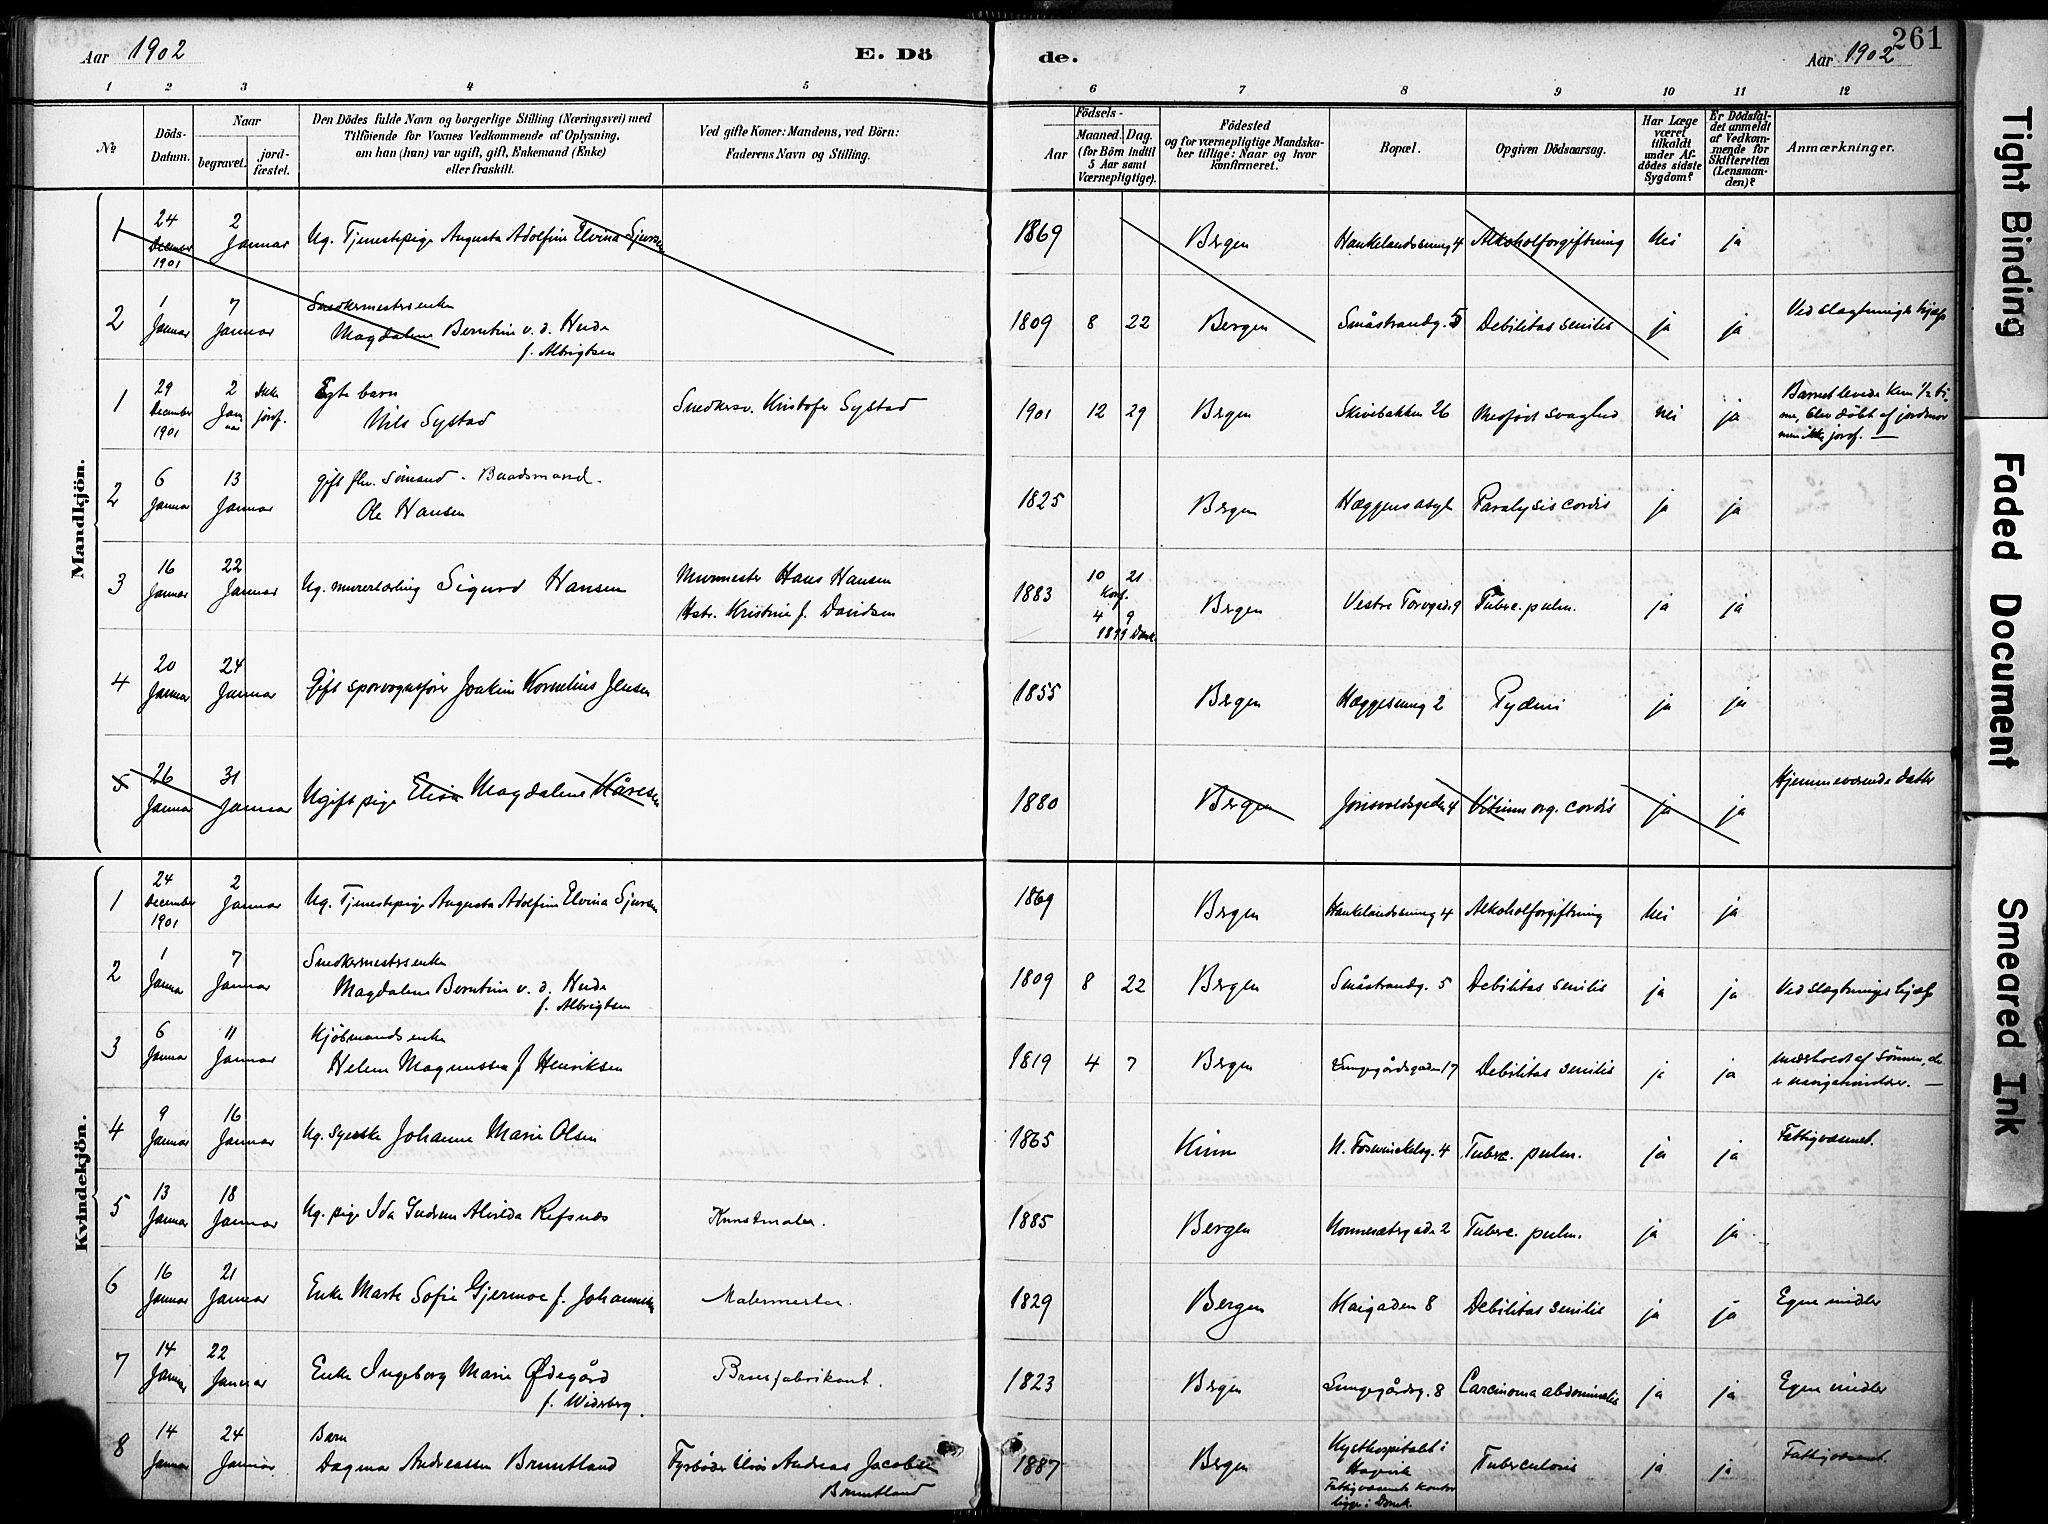 Aar 1902
E. Dö
de.
Aar 1902
261
1 2 3 4 5 6 7 8 9 10 11 12
№
Döds-
Datum.
Naar
begravet.
jord-
fæstet.
Den Dödes fulde Navn og borgerlige Stilling (Næringsvei) med
Tilföiende for Voxnes Vedkommende af Oplysning,
om han (hun) var ugift, gift, Enkemand (Enke)
eller fraskilt.
Ved gifte Koner: Mandens, ved Börn:
Faderens Navn og Stilling.
Aar
Födsels-
Maaned. Dag.
(for Börn indtil
5 Aar samt
Værnepligtige).
Födested
og for værnepligtige Mandska-
ber tillige: Naar og hvor
konfirmeret.
Bopæl.
Opgiven Dödsaarsag.
Har Læge
været
tilkaldt
under Af-
dödes sidste
Sygdom?
Er Dödsfal-
det anmeldt
af Vedkom-
mende for
Skifteretten
(Lensman-
den)?
Anmærkninger.
Mandkjön.
1 24 December 1901 2 Januar Ug. Tjenestepige Augusta Adolfine Elvina Sjursen 1869 Bergen Haukelandsveieng 4 Alkoholforgiftning Nei ja
2 1 Januar 7 Januar Snedkermestersenke
Magdalene Berntine v. d. Heide
f. Albrigtsen 1809 8 22 Bergen Småstrandg. 5 Debilitas senilis ja ja Ved slægtninges hjælp
1 29 December 1901 2 Januar Ikke jordf. Egte barn
Nils Systad Snedkersv. Kristofer Systad 1901 12 29 Bergen Skivebakken 26 Medfødt svaghed nei ja Barnet levede kun 1/2 ti-
me, blev døbt af jordmor
men ikke jordf. —
2 6 Januar 13 Januar gift fhv. Sømand - Baadsmand.
Ole Hansen 1825 Bergen Hæggens asyl Paralysis cordis ja ja
3 16 Januar 22 Januar Ug. murerlærling Sigurd Hansen Murmester Hans Hansen
Hstr. Kristine f. Davidsen 1883 10 21 Konf. 4 9 1899 Domk. Bergen Vestre Torvgade 9 Tuberc. pulm. ja ja
4 20 Januar 24 Januar Gift sporvognsfører Joakim Kornelius Jensen 1855 Bergen Hæggesmug 2 Pyæmi ja ja
5 26 Januar 31 Januar Ugift pige Elisa Magdalene Kåresen 1880 Bergen Jonsvoldsgaden 4 Vitium org. cordis ja ja Hjemmeværende datter
Kvindekjön.
1 24 December 1901 2 Januar Ug. Tjenestepige Augusta Adolfine Elvina Sjursen 1869 Bergen 4 Alkoholforgiftning Nei ja
2 1 Januar 7 Januar Snedkermestersenke
Magdalene Berntine v. d. Heide
f. Albrigtsen 1809 8 22 Bergen Småstrandg. 5 Debilitas senilis ja ja Ved slægtninges hjælp
3 6 Januar 11 Januar Kjøbmandsenke
Helene Magnussen f Henriksen 1819 4 7 Bergen Lungegårdsgaden 17 Debilitas senilis ja ja Underholdt af Sønnen, der
er
4 9 Januar 16 Januar Ug. syerske Johanne Marie Olsen 1865 Kinn N. Foswinckelsg. 4 Tuberc. pulm. ja ja Fattigvæsenet.
5 13 Januar 18 Januar Ug. pige Ida Gudrun Alvilda Refsnæs Kunstmaler. 1885 Bergen 2 Tuberc. pulm. ja ja
6 16 Januar 21 Januar Enke Marte Sofie Gjermoe f. Johannesen Malermester. 1829 Bergen Kaigaden 8 Debilitas senilis ja ja Egne midler
7 14 Januar 22 Januar Enke Ingeborg Marie Ødegård
f. Widsberg. Brusfabrikant. 1823 Bergen Lungegårdsg. 8 Carcinoma abdominalis ja ja Egne midler
8 14 Januar 24 Januar Barn
Dagmar Andreassen Bruntland Fyrbøder Andreas Jacobsen
Bruntland 1887 Bergen Kysthospitalet i
Hagevik
Fattigvæsenets kontor
ligge i Domk. Tuberculosis ja ja Fattigvæsenet.
Tight Binding
Faded Document
Smeared Ink